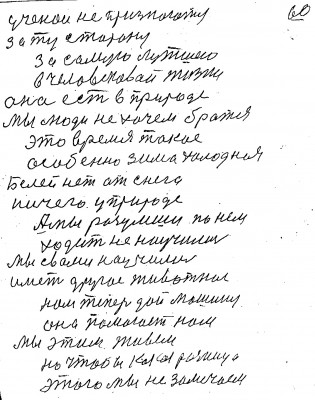 60
ученои не признается
за ту сторону
за самую лутшею
в человековай жизни
она ест в природе
мы люди не хочем братя
это время такое
особенно зима холодная
Белей нет от снега
ничего у природе
А мы разумиши по нем
ходит не научились
мы свами научились
имет другое животное
нам тепер дай машину
она помогает нам
мы этим живем
но чтобы какая разница
этого мы не замечаем